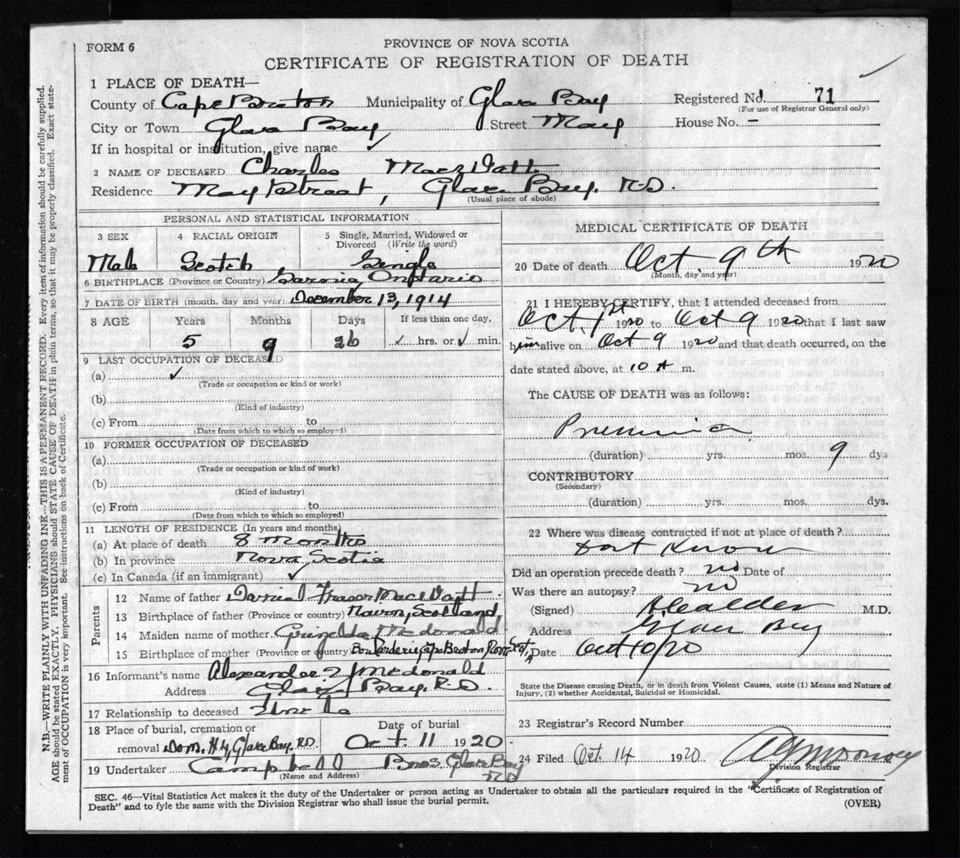 FORM 6
PROVINCE OF NOVA SCOTIA
CERTIFICATE OF REGISTRATION OF DEATH
1 PLACE OF DEATH—
County of Cape Breton Municipality of Glace Bay Registered No. 71
(For use of Registrar General only)
City or Town Glace Bay Street May House No. –
If in hospital or institution, give name ✓
2 NAME OF DECEASED Charles
Residence May Street, Glace Bay. R.D.
(Usual place of abode)
PERSONAL AND STATISTICAL INFORMATION
3 SEX 4 RACIAL ORIGIN 5 Single, Married, Widowed or Divorced (Write the word)
Male Scotch Single
6 BIRTHPLACE (Province or Country) Sarnia, Ontario
7 DATE OF BIRTH (month, day and year) December 13, 1914
8 AGE Years Months Days If less than one day,
5 9 26 ✓ hrs. or ✓ min.
9 LAST OCCUPATION OF DECEASED
(a) ✓
(Trade or occupation or kind or work)
(b)
(Kind of industry)
(c) From to
(Date from which to which so employed)
10 FORMER OCCUPATION OF DECEASED
(a)
(Trade or occupation or kind of work)
(b)
(Kind of industry)
(c) From to
(Date from which to which so employed)
11 LENGTH OF RESIDENCE (In years and months)
(a) At place of death 8 months
(b) In province Nova Scotia
(c) In Canada (if an immigrant) ✓
Parents
12 Name of father Daniel Fraser
13 Birthplace of father (Province or country) Nairn, Scotland
14 Maiden name of mother McDonald
15 Birthplace of mother (Province or country) Boularderie Cape Breton Nova Scotia
16 Informant's name Alexander McDonald
Address Glace Bay. R.D.
17 Relationship to deceased Uncle
18 Place of burial, cremation or removal Dom. No 4, Glace Bay. R.D.
Date of burial Oct. 11 1920
19 Undertaker Campbell Bros. Glace Bay R.D.
(Name and Address)
MEDICAL CERTIFICATE OF DEATH
20 Date of death Oct 9th 1920
(Month, day and year)
21 I HEREBY CERTIFY, that I attended deceased from
Oct. 1st 1920 to Oct 9 1920 that I last saw
him alive on Oct 9 1920 and that death occurred, on the
date stated above, at 10 A m.
The CAUSE OF DEATH was as follows:
(duration) yrs. mos. 9 dys
CONTRIBUTORY
(Secondary)
(duration) yrs. mos. dys.
22 Where was disease contracted if not at place of death?
Dont Know
Did an operation precede death? no Date of
Was there an autopsy? no
(Signed) Calder M.D.
Address Glace Bay
Date Oct 10/20
State the Disease causing Death, or in death from Violent Causes, state (1) Means and Nature of
Injury, (2) whether Accidental, Suicidal or Homicidal.
23 Registrar's Record Number
24 Filed Oct. 14 1920
Division Registrar
SEC. 46—Vital Statistics Act makes it the duty of the Undertaker or person acting as Undertaker to obtain all the particulars required in the "Certificate of Registration of
Death" and to fyle the same with the Division Registrar who shall issue the burial permit.
(OVER)
N.B.—WRITE PLAINLY WITH UNFADING INK—THIS IS A PERMANENT RECORD. Every item of information should be carefully supplied.
AGE should be stated EXACTLY. PHYSICIANS should STATE CAUSE OF DEATH in plain terms, so that it may be properly classified. Exact state-
ment of OCCUPATION is very important. See instructions on back of Certificate.